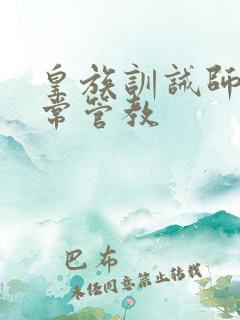 皇族訓誡師日
常管教
巴布
未经同意禁止转载